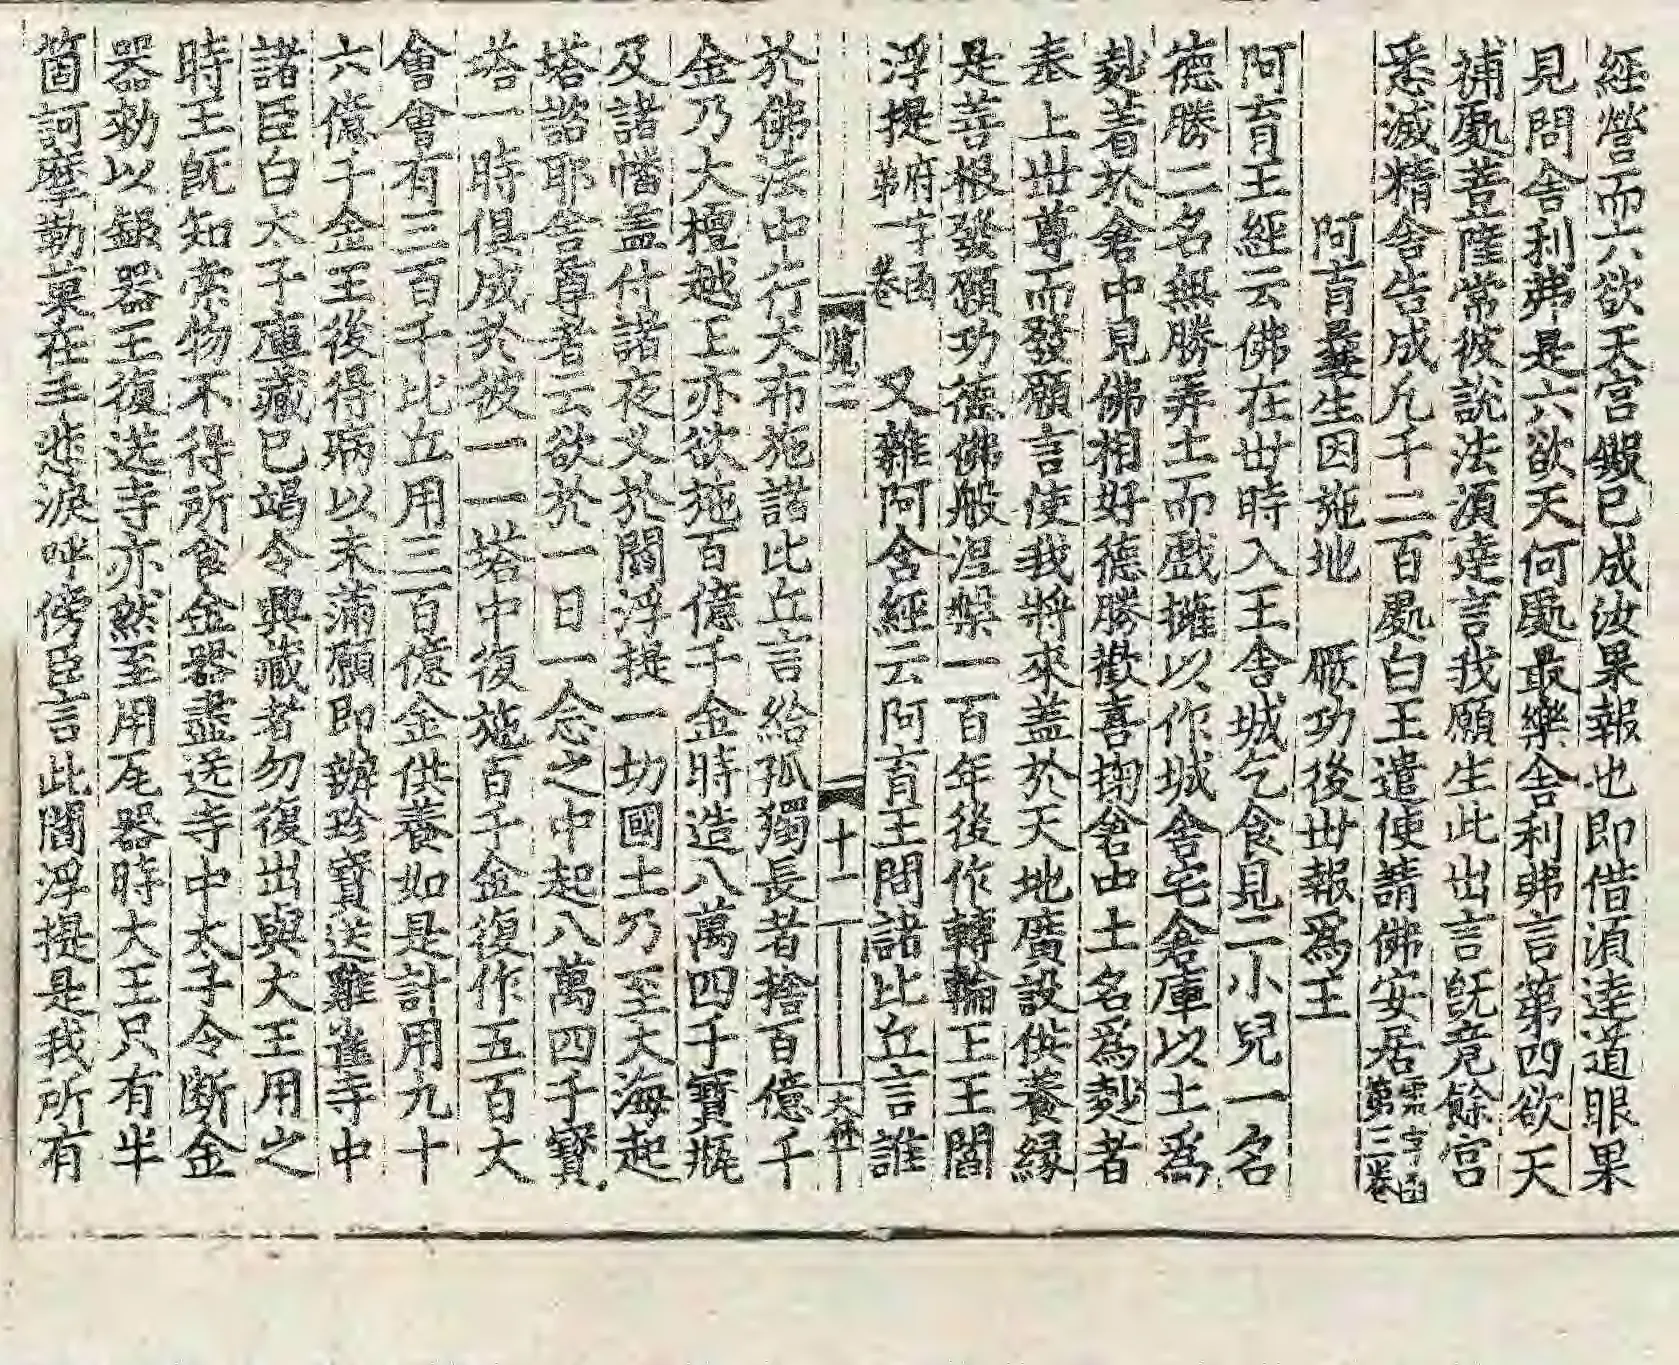 經營而六欲天宮缎已成汝果報也即借湏逹道眼果
見問舍利弗是六欲天何處最樂舍利弗言第四欲天
補處菩薩常彼說法湏逹言我願生此出言旣竟餘宮
悉滅精舍告成凢千二百處白王遣使請佛安居霈字函第三卷
阿育最夢生因施地　厥功後丗報爲王
阿育王經云佛在丗時入王舍城乞食見二小兒一名
德勝二名無勝弄土而戱擁以作城舍宅倉庫以土爲
麨著於倉中見佛相好德勝歡喜掬倉中土名爲麨者
奉上丗尊而發願言使我將來盖於天地廣設供養緣
是善根發願功德佛般涅槃一百年後作轉輪王王閻
浮提府字函第一卷　又雜阿含經云阿育王問諸比丘言誰
覽二　十一　大井
於佛法中行大布施諸比丘言給孤獨長者捨百億千
金乃大檀越王亦欲施百億千金時造八萬四千寶甁
及諸幡盖付諸夜义於閻浮提一切國土乃至大海起
塔詣耶舍尊者云欲於一日一念之中起八萬四千寶
塔一時俱成於彼一一塔中復施百千金復作五百大
會會有三百千比丘用三百億金供養如是計用九十
六億千金王後得病以未滿願即辦珍寶送雞雀寺中
諸臣白太子庫藏已竭令典藏者勿復出與大王用之
時王旣知索物不得所食金器盡送寺中太子令断金
器効以銀器王復送寺亦然至用瓦器時大王只有半
箇訶摩勒菓在手悲淚呼傍臣言此閻浮提是我所有